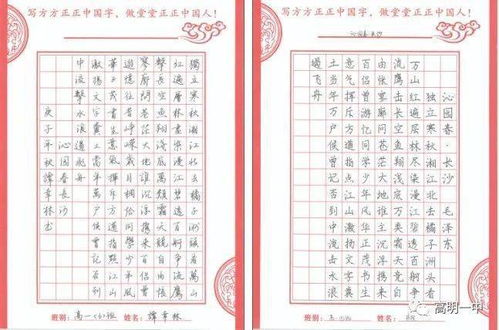 写方方正正中国字，做堂堂正正中国人！
獨立寒秋湘江北去橘子洲頭看萬山
紅遍層林盡染漫江碧透百舸爭流鷹
擊長空魚翔淺底萬類霜天競自由悵
寥廓問蒼茫大地誰主沉浮攜來百侶曾
遊憶往昔崢嶸歲月稠恰同學少年風
華正茂書生意氣揮斥方遒指點江山
激揚文字糞土當年萬戶侯曾記否到
中流擊水浪遏飛舟
沁园春長沙
庚子年秋譚章林书
班别： 高一 班 姓名： 譚章林
写方方正正中国字，做堂堂正正中国人！
沁园春 长沙
沁园春·长沙 毛泽东
独立寒秋湘江北去橘子洲头看
万山红遍层林尽染漫江碧透百舸争
流鹰击长空鱼翔浅底万类霜天竞自
由怅寥廓问苍茫大地谁主沉浮携来
百侣曾游忆往昔峥嵘岁月稠恰同学
少年风华正茂书生
意气挥斥方遒指点江山激扬文字粪
土当年万户侯曾记否到中流击水浪
遏飞舟
班别： 姓名：
高明一中